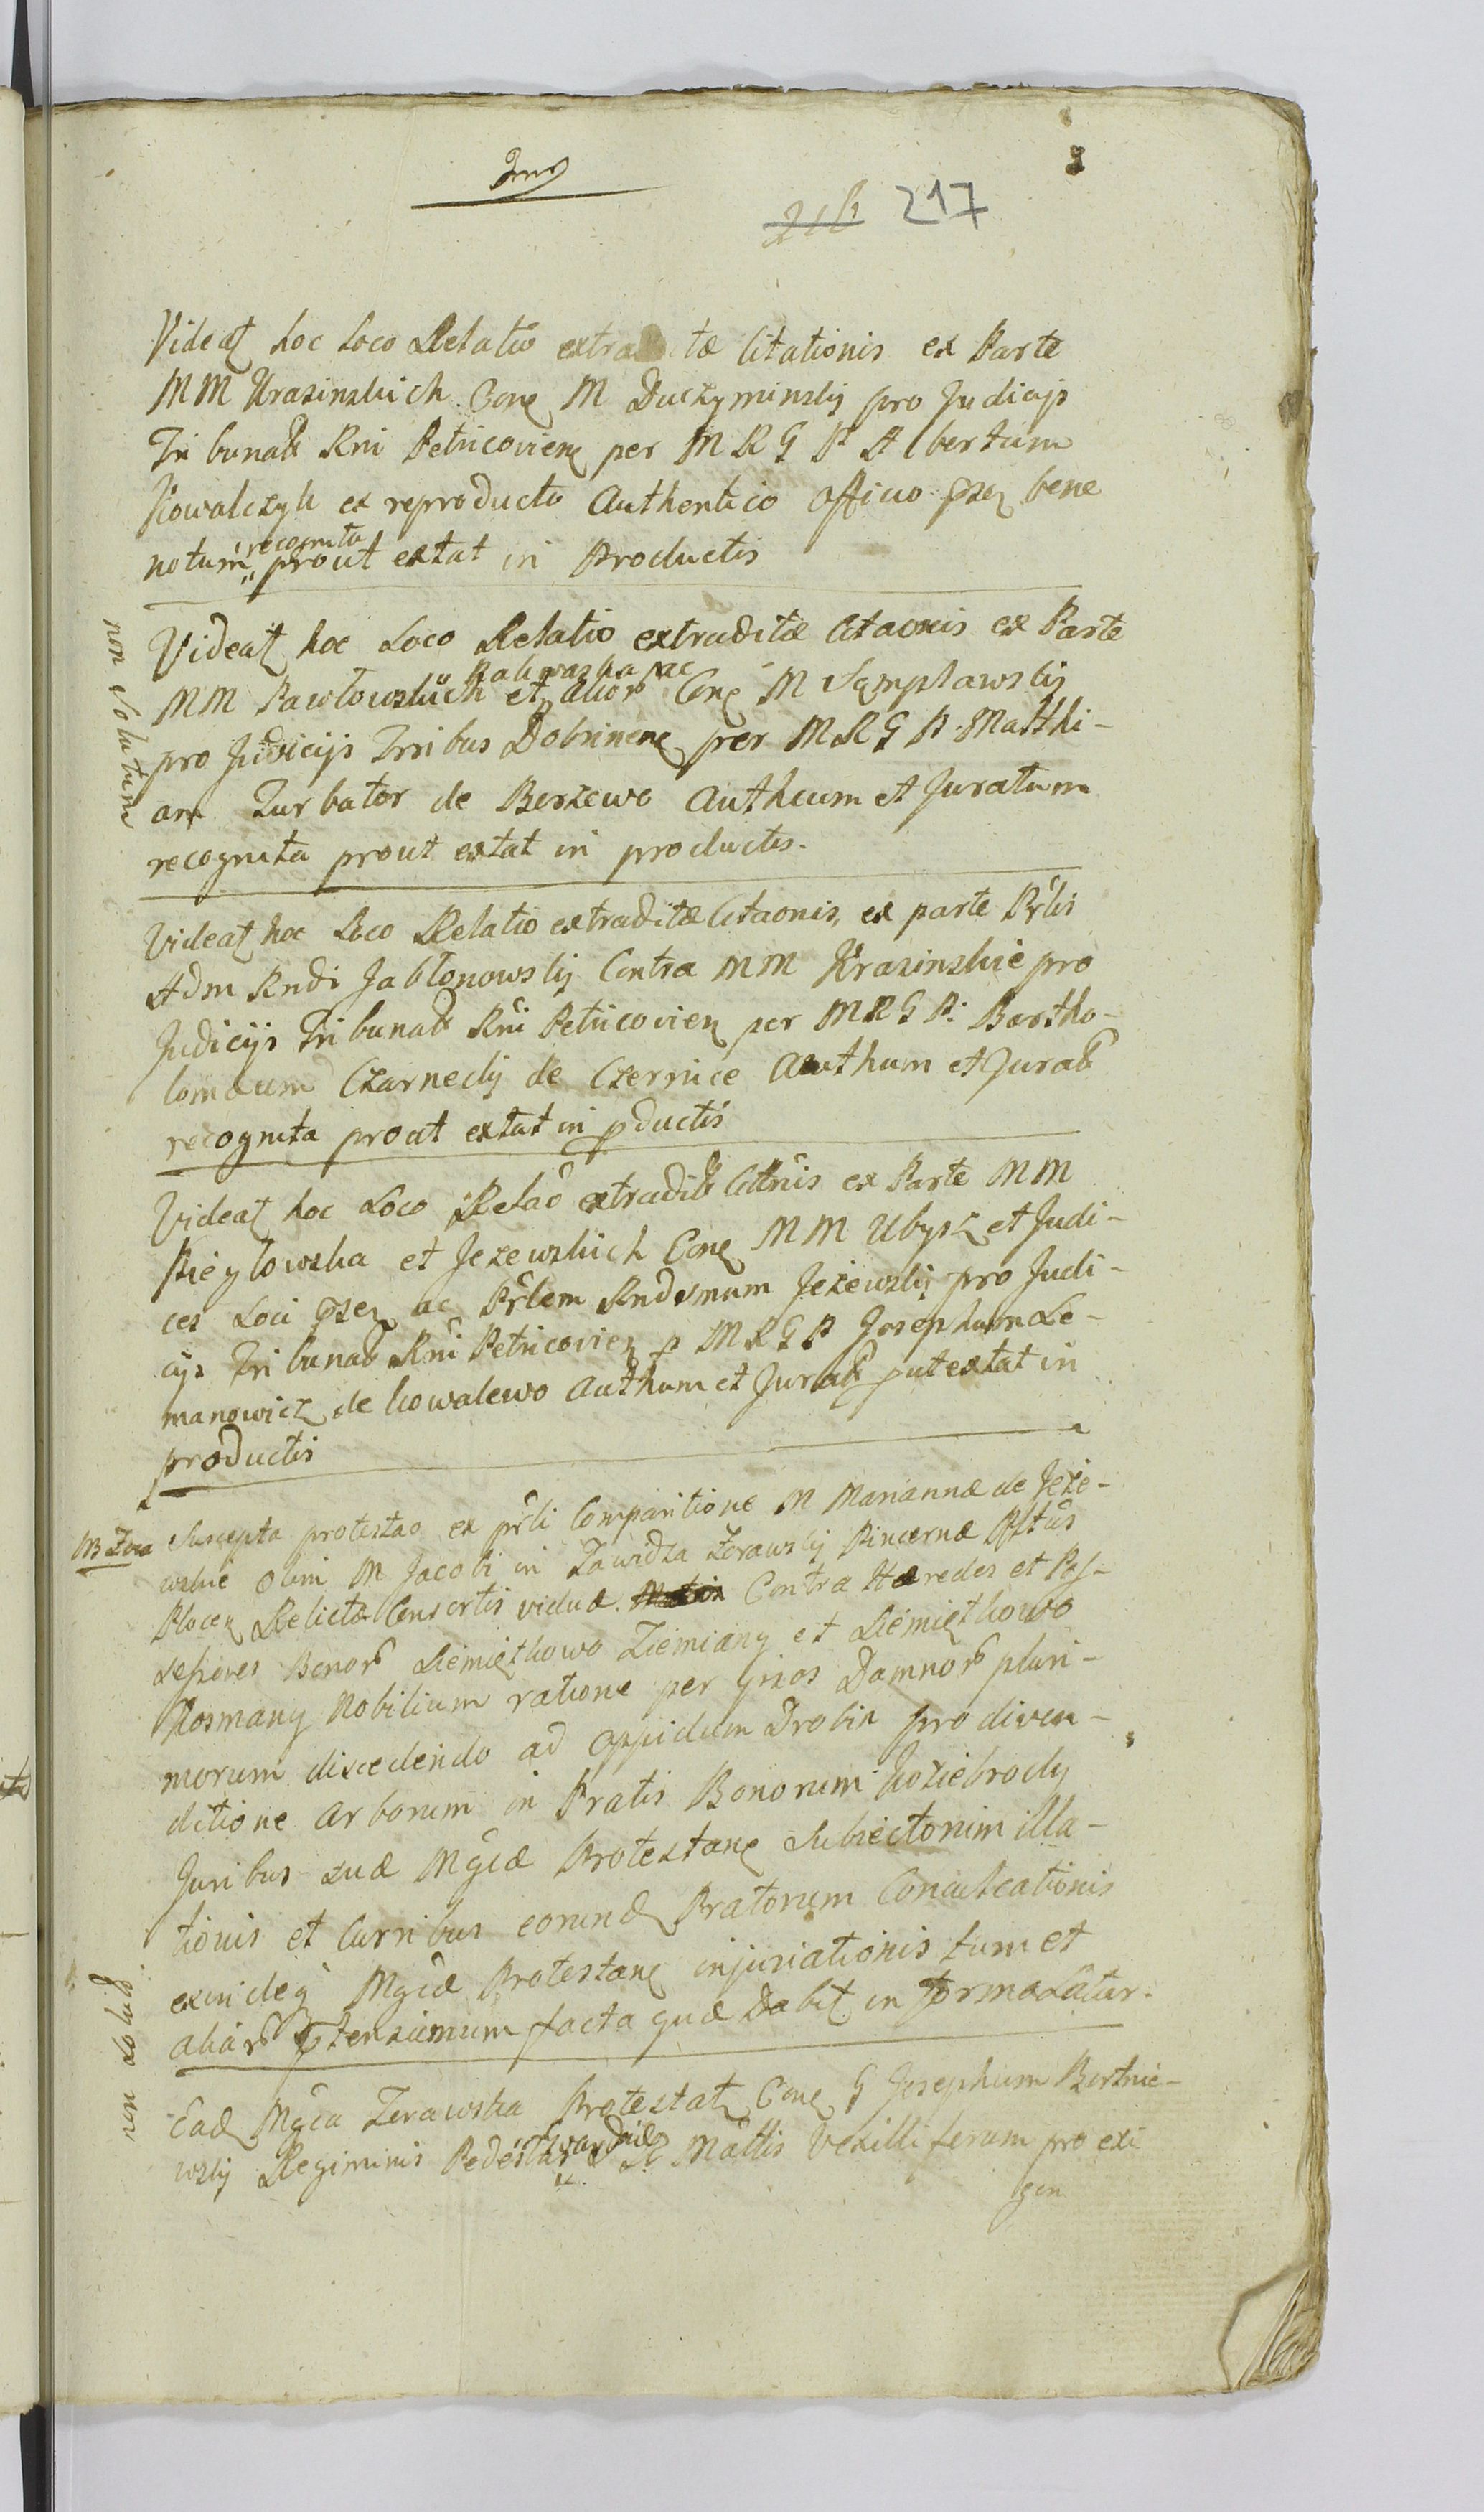 217
Videat hoc Loco Relatio extraditæ Citationis ex Parte
MM Krasinskich Conę M Duczyminsky pro Judicijs
Tribunał Rni Petricovien per M R G P Albertum
Kowalczyk ex reproducto Authentico officio pszen bene
notum recognita prout extat in Productis
non solutum
Videat hoc Loco Relatio extraditæ Citaonis ex Parte
MM Pawłowskich et Rakowska ac alior Conę M Sęmpławsky
pro Judicijs Trribus Dobrinenę per M R G P Matthi-
am Turbator de Berzewo Autheum et Juratum
recognita prout extat in productis.
Videat hoc Loco Relatio extraditæ Citaonis, ex parte Prlis
Adm Rndi Jabłonowsky Contra MM Krasinskie pro
Judicijs Tribunał Rni Petricovien per M R G P. Bartho-
lomæum Czarnecky de Czernice Authum et Jurał
recognita prout extat in pductis
Videat hoc Loco Relao extradił Cittnis ex Parte MM
Pięgłowska et Jezewskich Conę MM Ubysz et Judi-
ces Loci pszen ac Prlem Rndsmum Jeżewsky pro Judi-
cijs Tribunał Rni Petricovien p M R G P Josephum Le-
manowicz de Kowalewo Authum et Jurał put extat in
productis
Suscepta protestao ex prli Comparitione M Mariannæ de Jeże-
wskie olim M Jacobi in Zawidza Zerawsky Pincernæ Ostius
Plocen Relictæ Consortis viduæ. Contra Hæredes et Pos-
sessores Bonor Siemiętkowo Ziemiany et Siemiętkowo
Rosmany Nobilium ratione per ipsos Damnor pluri-
morum discedendo ad oppidum Drobin pro diven-
ditione arborum in Pratis Bonorum Koziebrody
Juribus suæ Mgcæ Protestanę Subiectorum illa-
tionis et Curribus eorund Pratorum Conculcationis
exindeq Mgcæ Protestanę injuriationis tum et
aliar ptensionum facta quæ Dabit in formæ Latior.
non exqg.
Ead Mgca Zerawska Protestat Conę G Josephum Bertnie-
wsky Regiminis Pedestris Gwardiæ R Mattis Vexilliferum pro exi
gen